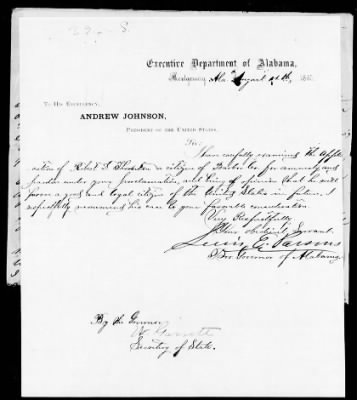 Executive Department of Alabama,
Montgomery, Ala. August 186
To His Excellency,
ANDREW JOHNSON,
President of the United States.
Sir:
I have carefully examined the appli
cation of Robert S. a citizen of Co for amnesty and
pardon under your proclamation, and being of opinion that he will
prove a good and loyal citizen of the United States in future. I
respectfully recommend his case to your favorable consideration.
Very Respectfully
Your obedient Servant.
Lewis E. Parsons
Pro. Governor of Alabama
By the Governor
Secretary of State.